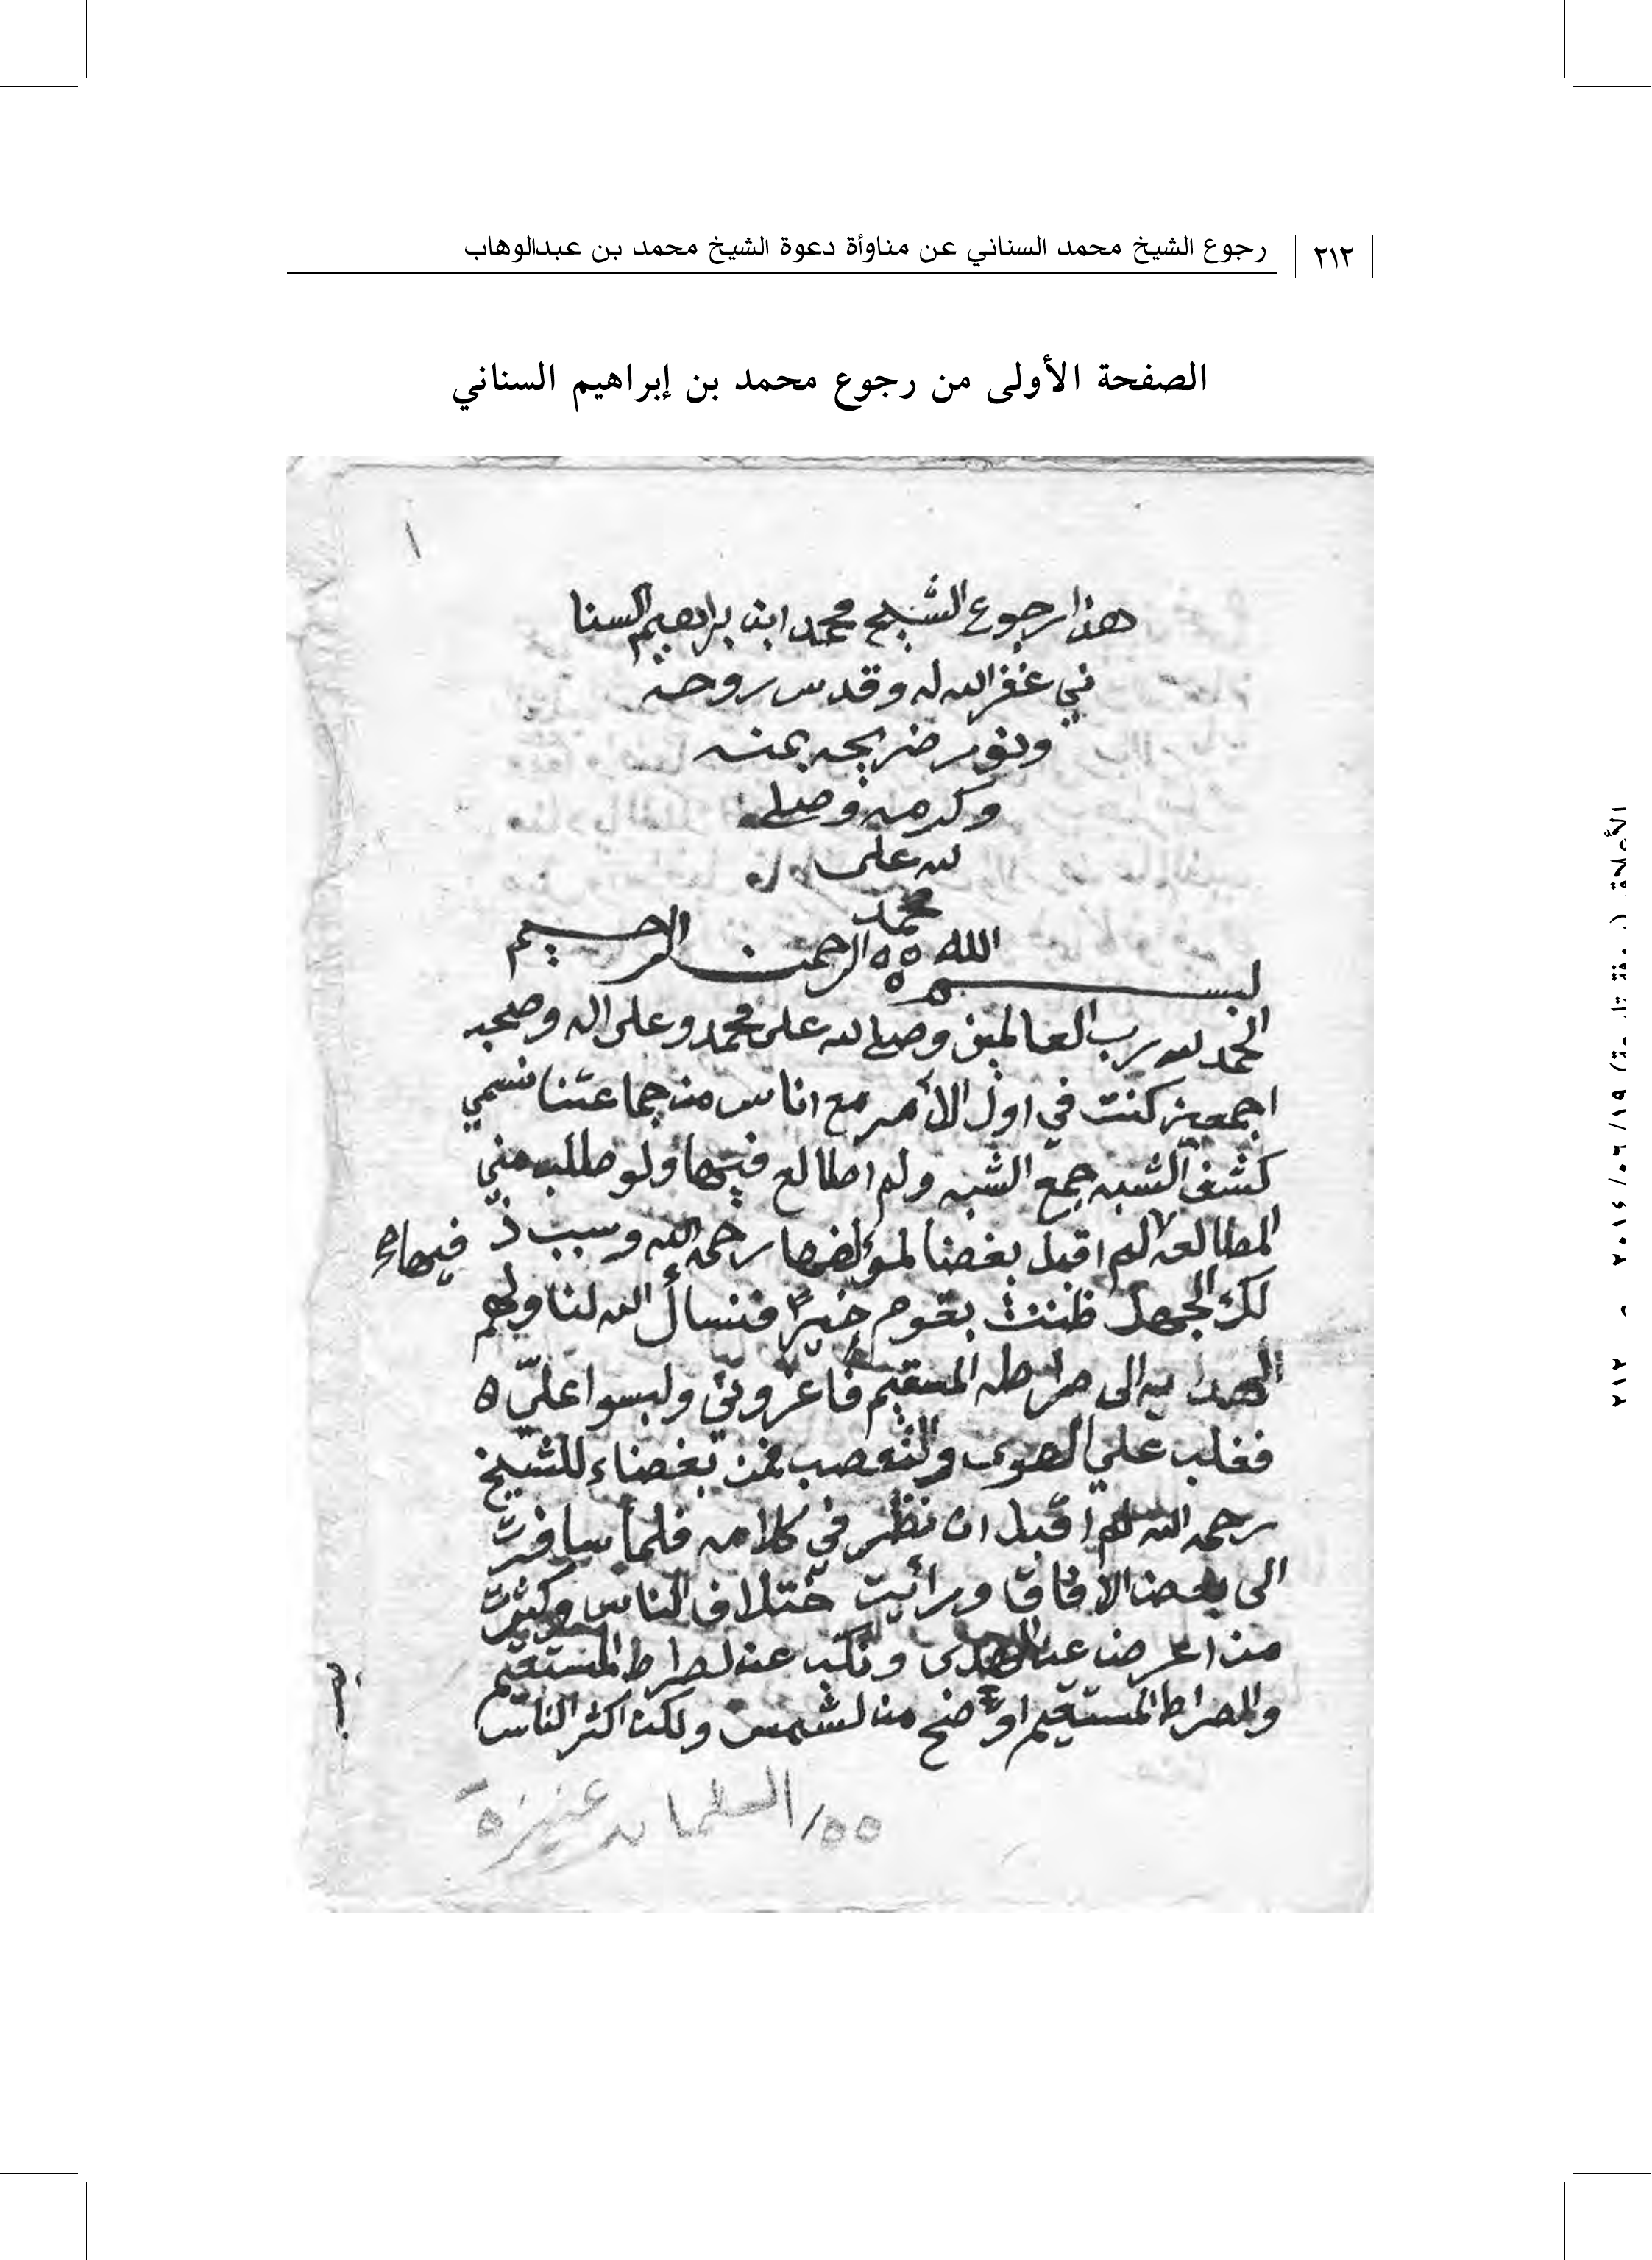 ٢١٢
رجوع الشيخ محمد السناني عن مناوأة دعوة الشيخ محمد بن عبدالوهاب
الصفحة الأولى من رجوع محمد بن إبراهيم السناني
١
هذا رجوع الشيخ محمد ابن براهيم السنا
ني غفر الله له وقدس روحه
ونور ضريحه بمنه
وكرمه وصلى
لله على
محمد
بسم الله الرحمن الرحيم
الحمد لله رب العالمين وصلى لله على محمد وعلى اله وصحبه
اجمعين كنت في اول الأمر مع اناس من جماعتنا نسمي
كشف الشبه جمع الشبه ولم اطالع فيها ولو طلب مني
المطالعه لم اقبل بغضا لمؤلفها رحمه الله وسبب ذ
فيها
لك الجهل ظننت بقوم خيرًا فنسأل الله لنا ولهم
الهدايه الى صراطه المستقيم فاغروني ولبسوا عليّ ه
فغلب علي الهوى والتعصب فمن بغضناء للشيخ
رحمه الله لم اقبل ان نظر في كلامه فلما سافرت
الى بعض الافاق ورأيت ختلاف الناس وكثرت
من اعرض عن الهدى ونكب عن لصراط المستقيم
والصراط المستقيم اوضح من لشمس ولكن اكثر الناس
٥٥/ السلمان عنيزة